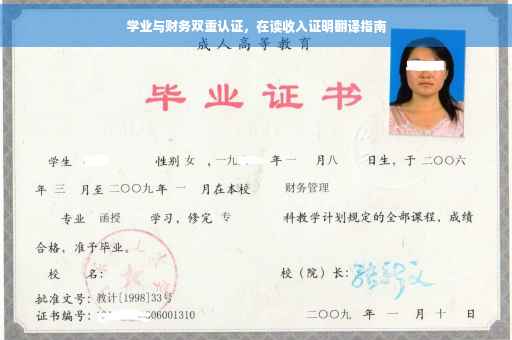 学业与财务双重认证，在读收入证明翻译指南
成人高等教育
毕业证书
学生 性别 女 ，一九 年 一 月八 日生，于 二〇〇六
年 三 月至 二〇〇九 年 一 月在本校 财务管理
专业 函授 学习，修完 专 科教学计划规定的全部课程，成绩
合格，准予毕业。
校 名： 校（院）长：
批准文号：教计[1998]33号
证书编号： 06001310 二〇〇九 年 一 月 十 日